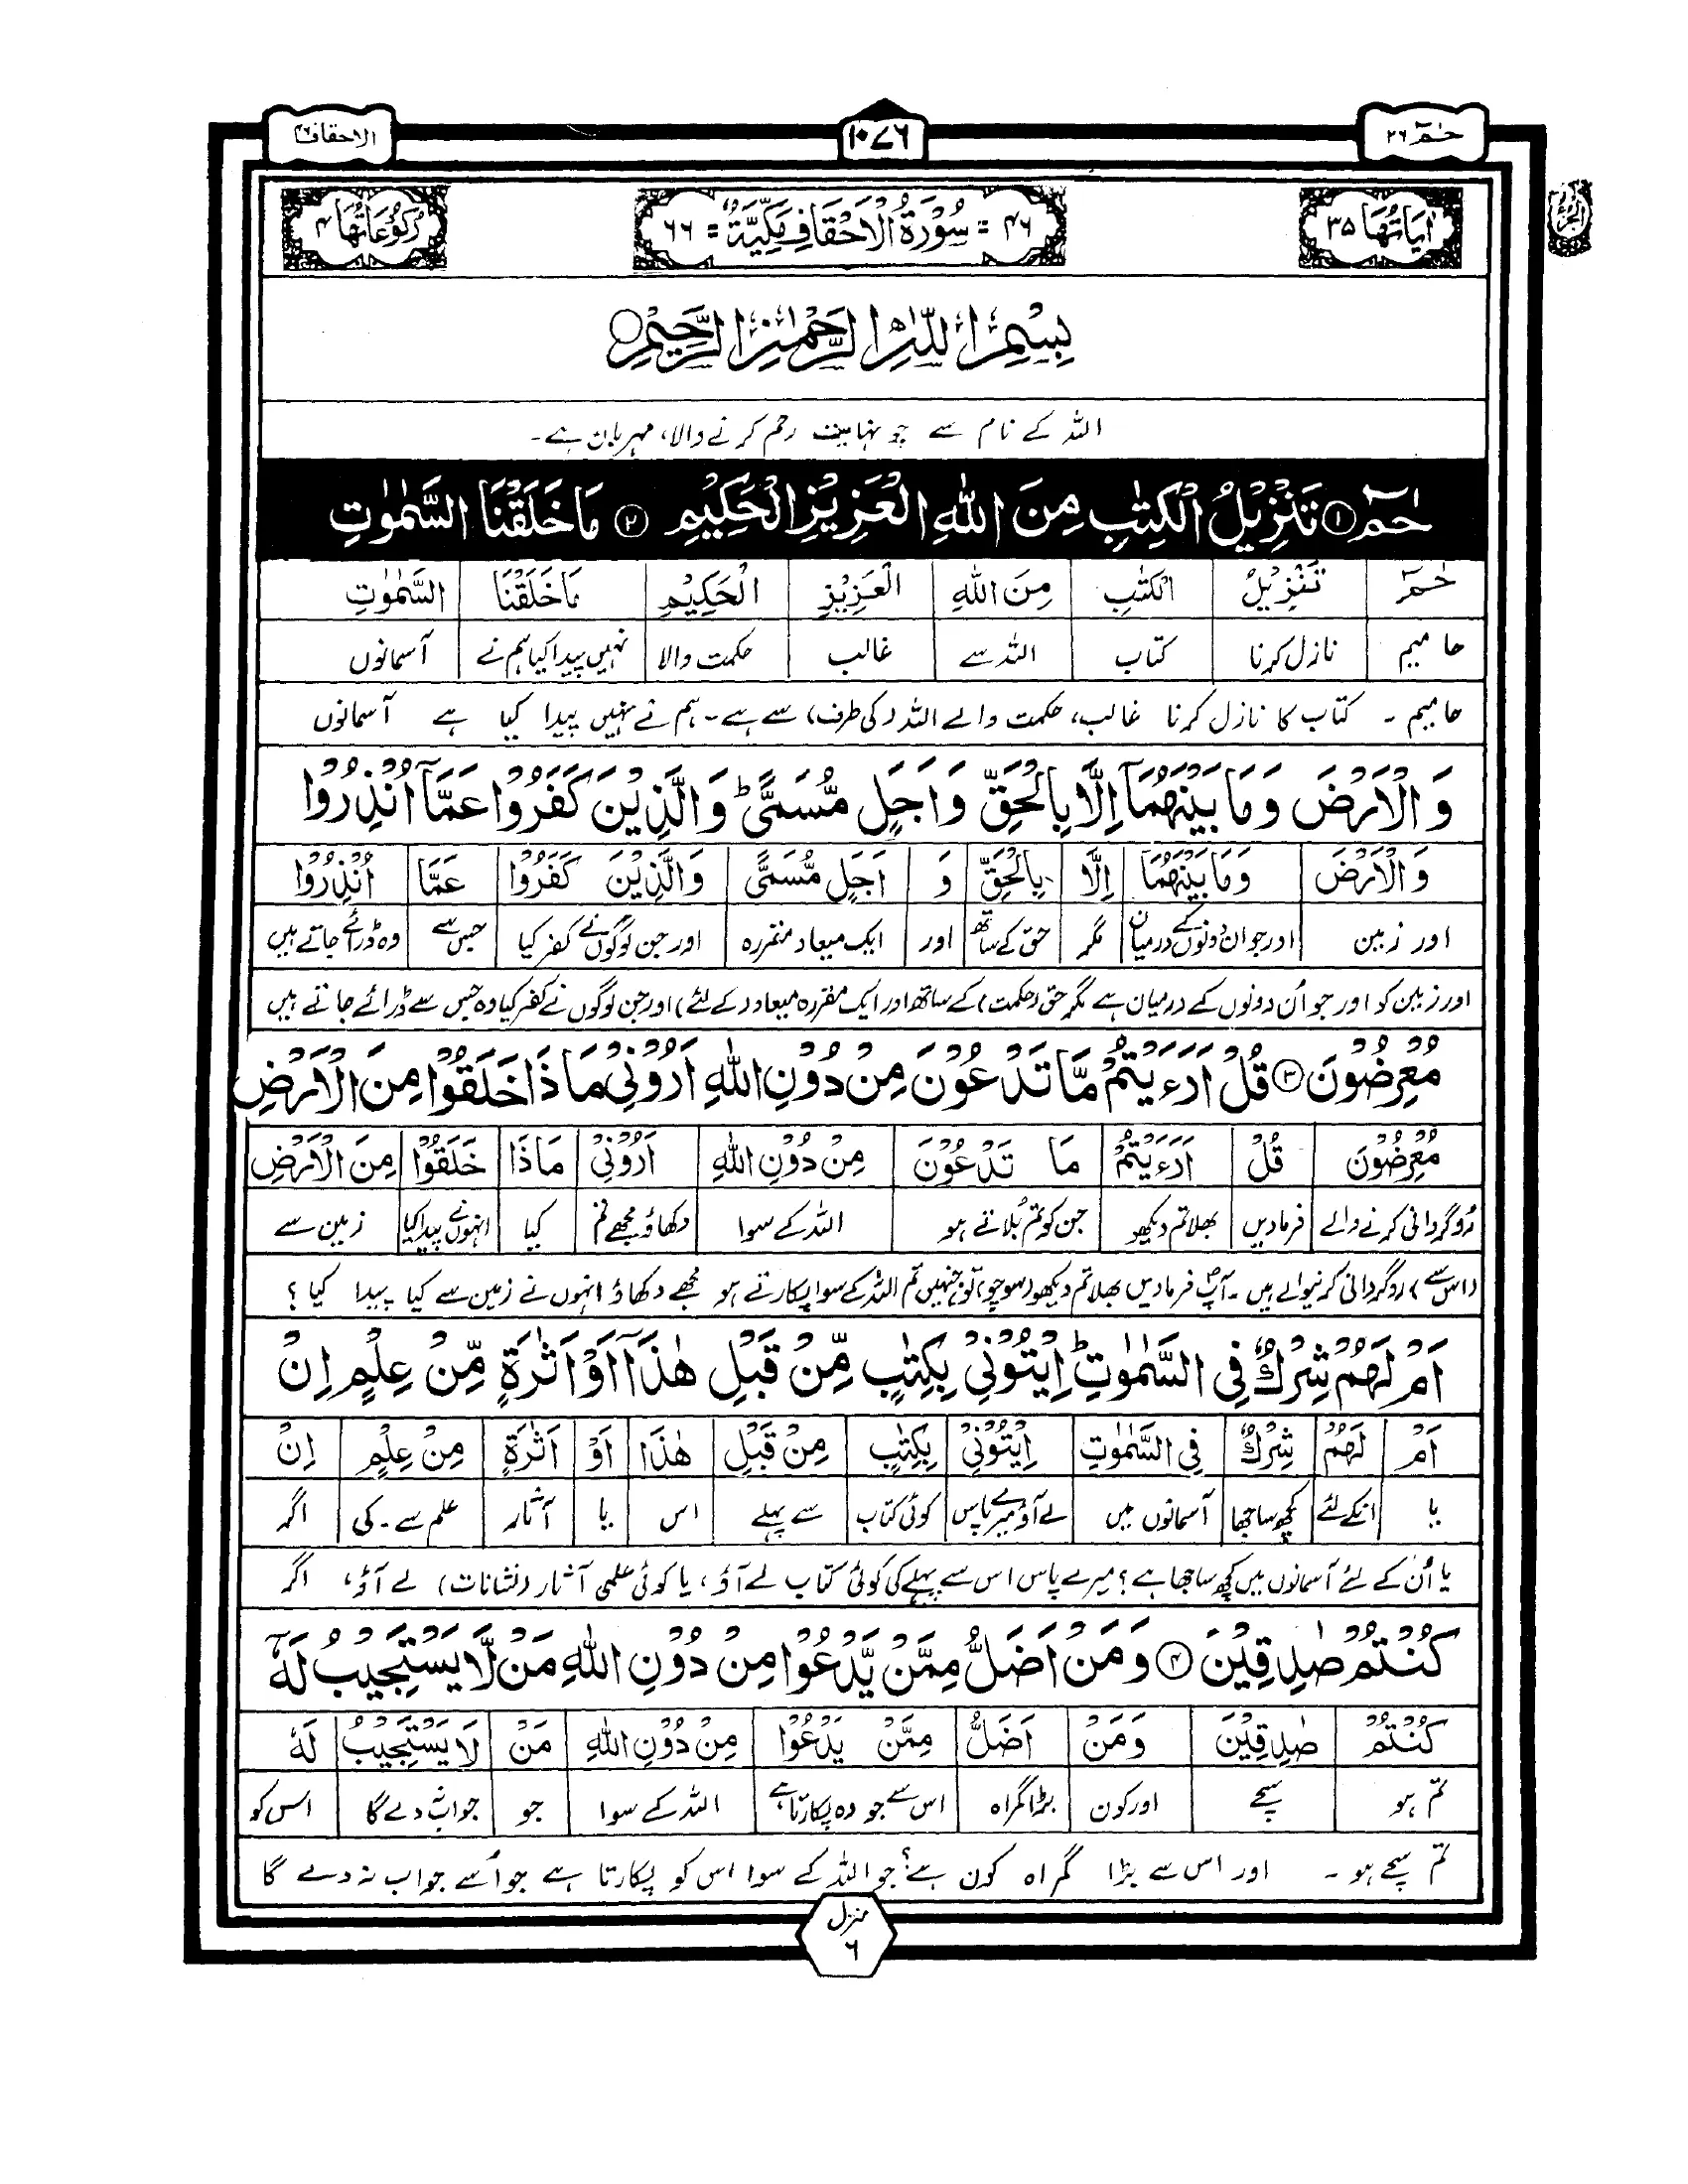 حٰمٓ ۲۶
۱۰۷۶
الاحقاف ۴۶
اٰيَاتُهَا ۳۵
۴۶ = سُوْرَةُ الْاَحْقَافِ مَكِّيَّةٌ = ۶۶
رُكُوْعَاتُهَا ۴
بِسْمِ اللّٰهِ الرَّحْمٰنِ الرَّحِيْمِ
اللہ کے نام سے جو نہایت رحم کرنے والا، مہربان ہے۔
حٰمٓ ۱ تَنْزِيْلُ الْكِتٰبِ مِنَ اللّٰهِ الْعَزِيْزِ الْحَكِيْمِ ۲ مَا خَلَقْنَا السَّمٰوٰتِ
حٰمٓ تَنْزِيْلُ الْكِتٰبِ مِنَ اللّٰهِ الْعَزِيْزِ الْحَكِيْمِ مَا خَلَقْنَا السَّمٰوٰتِ
حامیم نازل کرنا کتاب اللہ سے غالب حکمت والا نہیں پیدا کیا ہم نے آسمانوں
حامیم ۔ کتاب کا نازل کرنا غالب، حکمت والے اللہ (کی طرف) سے ہے۔ ہم نے نہیں پیدا کیا ہے آسمانوں
وَالْاَرْضَ وَمَا بَيْنَهُمَآ اِلَّا بِالْحَقِّ وَاَجَلٍ مُّسَمًّى ؕ وَالَّذِيْنَ كَفَرُوْا عَمَّآ اُنْذِرُوْا
وَالْاَرْضَ وَمَا بَيْنَهُمَآ اِلَّا بِالْحَقِّ وَ اَجَلٍ مُّسَمًّى وَالَّذِيْنَ كَفَرُوْا عَمَّا اُنْذِرُوْا
اور زمین اور جو ان دونوں کے درمیان مگر حق کے ساتھ اور ایک میعاد مقررہ اور جن لوگوں نے کفر کیا جس سے وہ ڈرائے جاتے ہیں
اور زمین کو اور جو اُن دونوں کے درمیان ہے مگر حق (حکمت) کے ساتھ اور ایک مقررہ میعاد (کے لئے) اور جن لوگوں نے کفر کیا وہ جس سے ڈرائے جاتے ہیں
مُعْرِضُوْنَ ۳ قُلْ اَرَءَيْتُمْ مَّا تَدْعُوْنَ مِنْ دُوْنِ اللّٰهِ اَرُوْنِيْ مَاذَا خَلَقُوْا مِنَ الْاَرْضِ
مُعْرِضُوْنَ قُلْ اَرَءَيْتُمْ مَا تَدْعُوْنَ مِنْ دُوْنِ اللّٰهِ اَرُوْنِيْ مَاذَا خَلَقُوْا مِنَ الْاَرْضِ
رُوگردانی کرنے والے فرمادیں بھلا تم دیکھو جن کو تم بُلاتے ہو اللہ کے سوا دکھاؤ مجھے تم کیا انہوں نے پیدا کیا زمین سے
(اس سے) رُوگردانی کرنیوالے ہیں ۔ آپؐ فرمادیں بھلا تم دیکھو (سوچو) تو، جنہیں تم اللہ کے سوا پکارتے ہو مجھے دکھاؤ انہوں نے زمین سے کیا پیدا کیا ؟
اَمْ لَهُمْ شِرْكٌ فِي السَّمٰوٰتِ ؕ اِيْتُوْنِيْ بِكِتٰبٍ مِّنْ قَبْلِ هٰذَآ اَوْ اَثٰرَةٍ مِّنْ عِلْمٍ اِنْ
اَمْ لَهُمْ شِرْكٌ فِي السَّمٰوٰتِ اِيْتُوْنِيْ بِكِتٰبٍ مِنْ قَبْلِ هٰذَا اَوْ اَثٰرَةٍ مِنْ عِلْمٍ اِنْ
یا انکے لئے کچھ ساجھا آسمانوں میں لے آؤ میرے پاس کوئی کتاب سے پہلے اس یا آثار علم سے۔ کی اگر
یا اُن کے لئے آسمانوں میں کچھ ساجھا ہے ؟ میرے پاس اس سے پہلے کی کوئی کتاب لے آؤ، یا کوئی علمی آثار (نشانات) لے آؤ، اگر
كُنْتُمْ صٰدِقِيْنَ ۴ وَمَنْ اَضَلُّ مِمَّنْ يَّدْعُوْا مِنْ دُوْنِ اللّٰهِ مَنْ لَّا يَسْتَجِيْبُ لَهٗٓ
كُنْتُمْ صٰدِقِيْنَ وَمَنْ اَضَلُّ مِمَّنْ يَدْعُوْا مِنْ دُوْنِ اللّٰهِ مَنْ لَا يَسْتَجِيْبُ لَهٗ
تم ہو سچے اور کون بڑا گمراہ اس سے جو وہ پکارتا ہے اللہ کے سوا جو جواب نہ دے گا اس کو
تم سچے ہو ۔ اور اس سے بڑا گمراہ کون ہے؟ جو اللہ کے سوا اس کو پکارتا ہے جو اُسے جواب نہ دے گا
منزل ۶